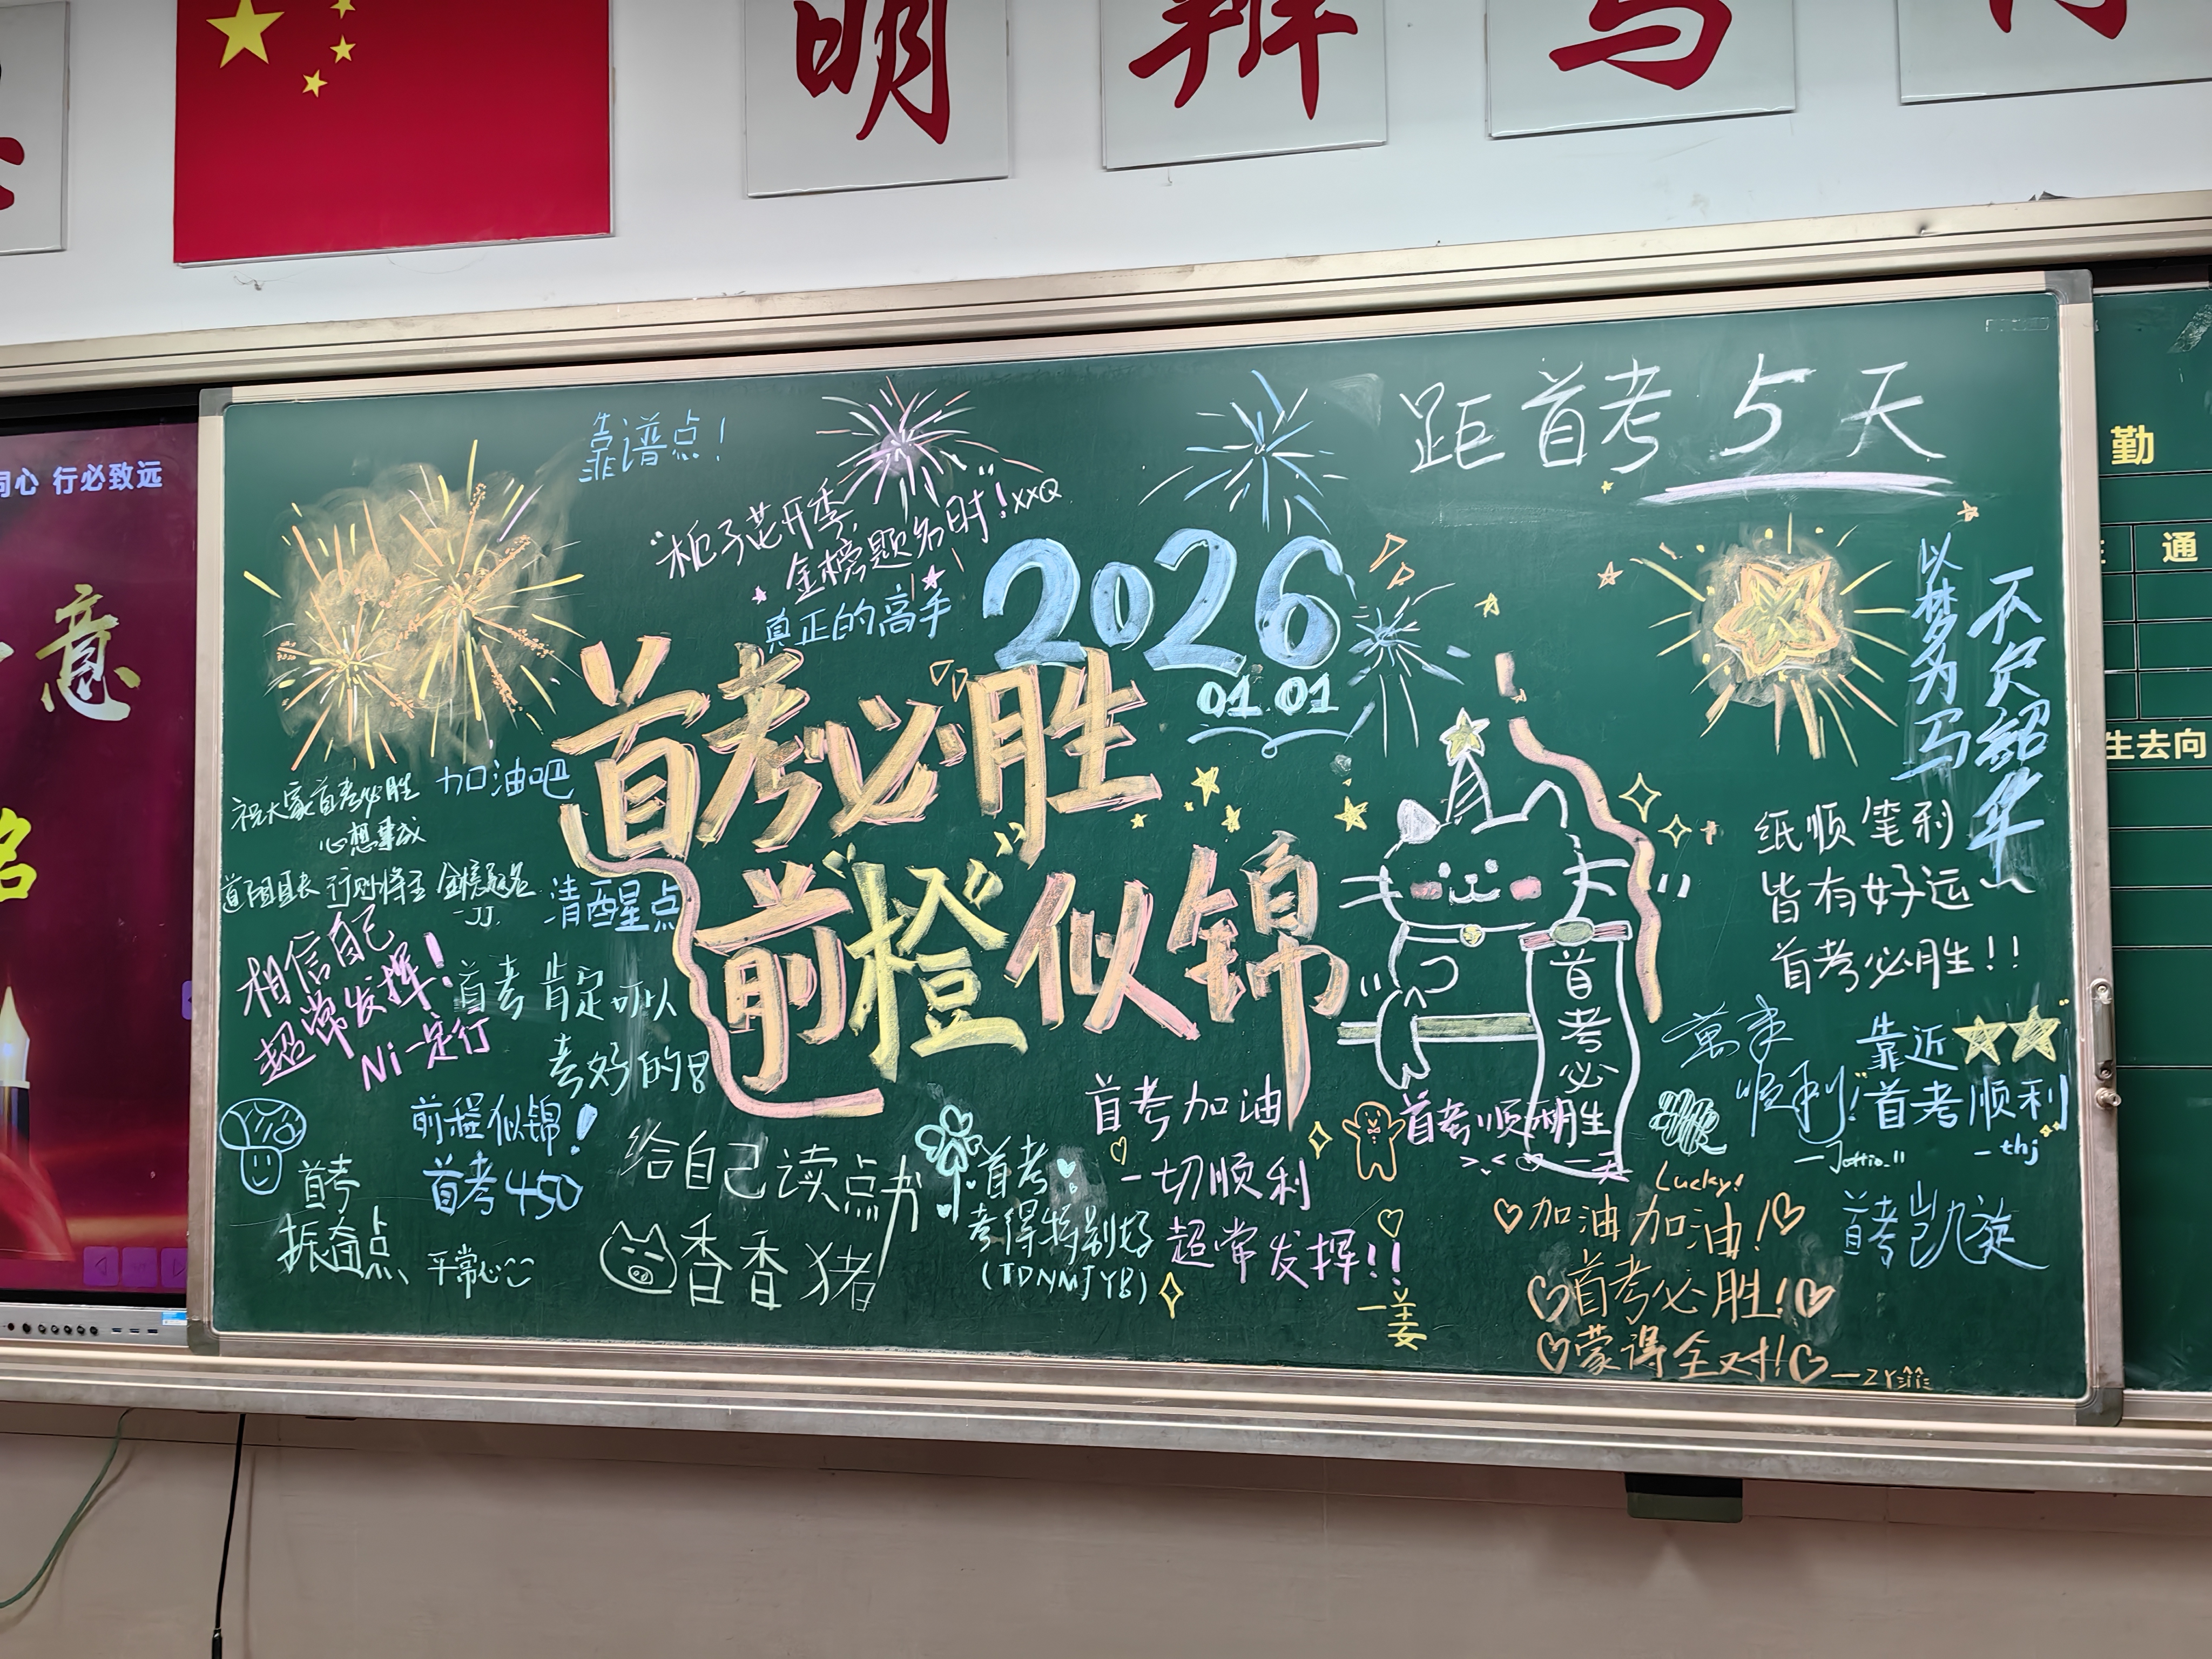 明 辨
同心 行必致远
意
靠谱点！
距首考5天
"栀子花开季，
金榜题名时"！XXQ
真正的高手
2026
01.01
首考必胜
前"橙"似锦
以梦为马
不负韶华
祝大家首考必胜
心想事成
加油吧
道阻且长 行则将至 金榜题名
-JJ.
清醒点
相信自己
超常发挥！
Ni一定行
首考肯定可以
考好的8
纸顺笔利
皆有好运~
首考必胜！！
首考必
萬事
顺利！
靠近
首考顺利
-thj
前程似锦！
首考450
首考
振奋点
平常心
给自己读点书
香香猪
首考
考得特别好
(TDNMJYB)
首考加油
一切顺利
超常发挥！！
一姜
首考顺利
Lucky!
加油加油！
首考必胜！
蒙得全对！
首考凯旋
勤
通
生去向